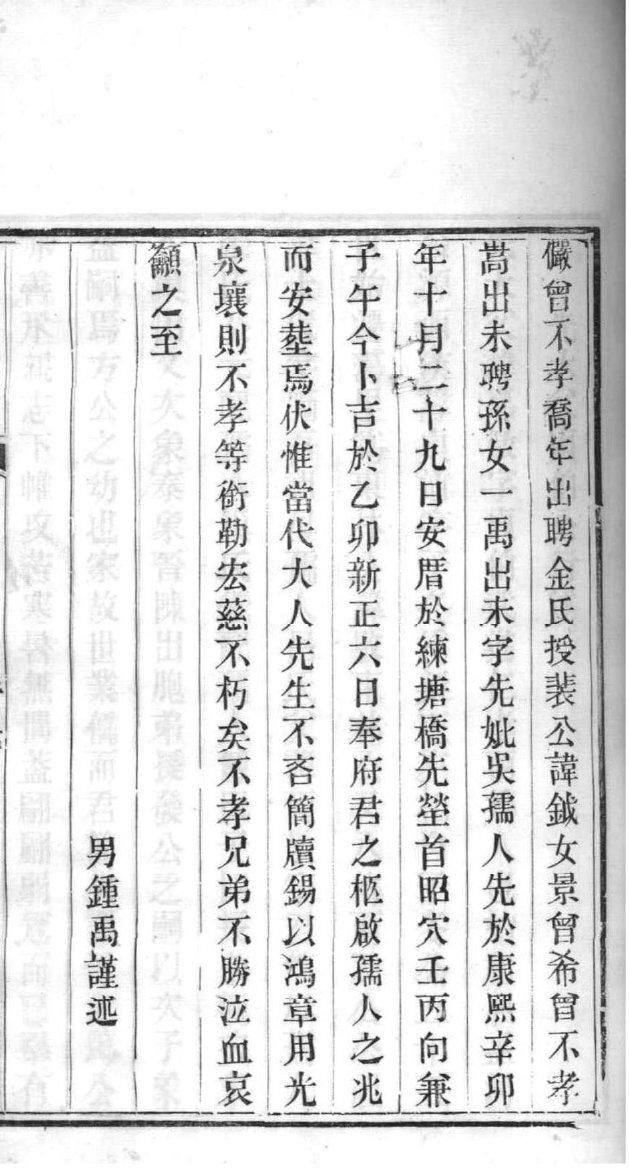 儼曾不孝喬年出聘金氏授裴公諱鉞女景曾希曾不孝
嵩出未聘孫女一禹出未字先妣吳孺人先於康熙辛卯
年十月二十九日安厝於練塘橋先塋首昭穴壬丙向兼
子午今卜吉於乙卯新正六日奉府君之柩啟孺人之兆
而安塟焉伏惟當代大人先生不吝簡牘錫以鴻章用光
泉壤則不孝等銜勒宏慈不朽矣不孝兄弟不勝泣血哀
籲之至
男鍾禹謹述